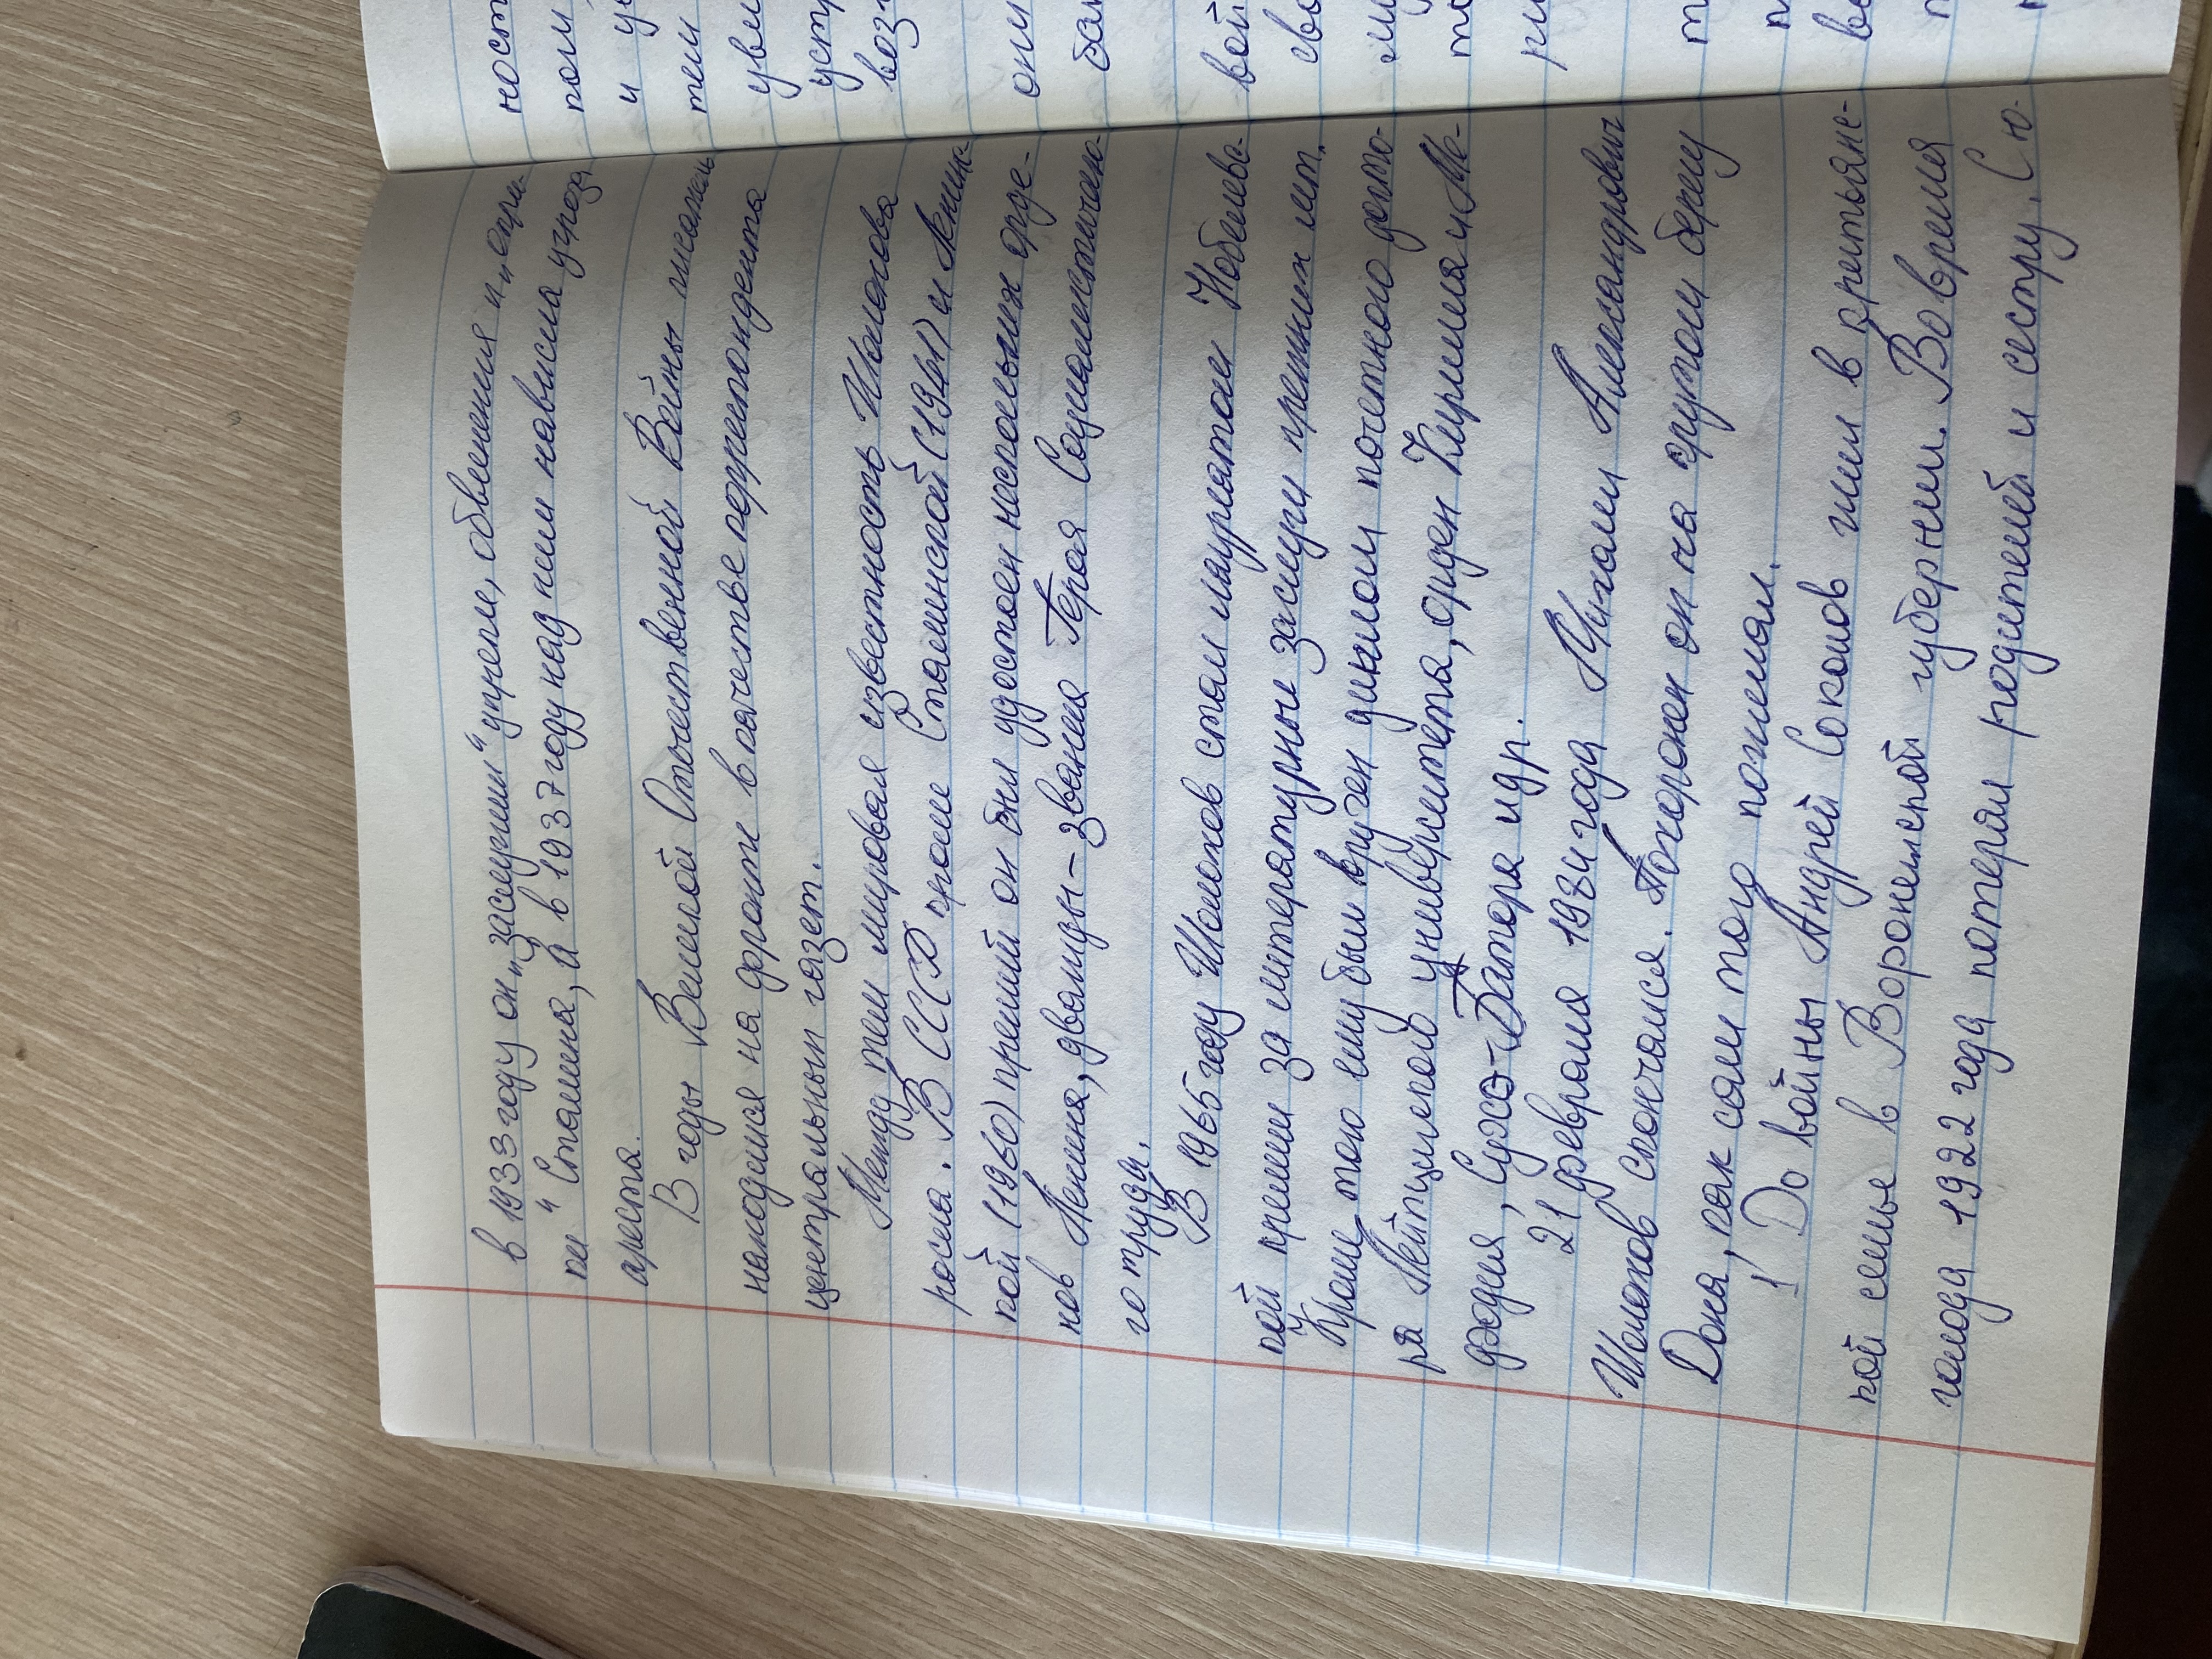 в 1933 году он „заслужил" упрёк, обвинения и „опе-
ки" Сталина, а в 1937 году над ним нависла угроза
ареста.
В годы Великой Отечественной Войны писатель
находился на фронте в качестве корреспондента
центральных газет.
Между тем мировая известность Шолохова
росла. В СССР кроме Сталинской (1941) и Ленинс-
кой (1960) премий он был удостоен нескольких орде-
нов Ленина, дважды – звания Героя Социалистическо-
го труда.
В 1965 году Шолохов стал лауреатом Нобелевс-
кой премии за литературные заслуги
Кроме того ему были вручен диплом почетного докто-
ра Лейпцигского университета, орден Кирилла и Ме-
фодия, Сухэ-Батора и др.
21 февраля 1984 года Михаил Александрович
Шолохов скончался. Похоронен он на крутом берегу
Дона, как сам того пожелал.
1) До войны Андрей Соколов жил в крестьянс-
кой семье в Воронежской губернии. Во время
голода 1922 года потерял родителей и сестру. С ю-
ност
пом
и у
тем
уви
устр
воз
они
ба
вой
сво